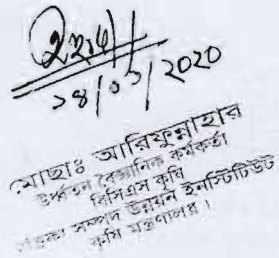 ২৪/০১/2020
মোছাঃ আরিফুন্নাহার
উর্ধ্বতন বৈজ্ঞানিক কর্মকর্তা
বিসিএস কৃষি
সম্পদ উন্নয়ন ইনস্টিটিউট
কৃষি মন্ত্রণালয়।